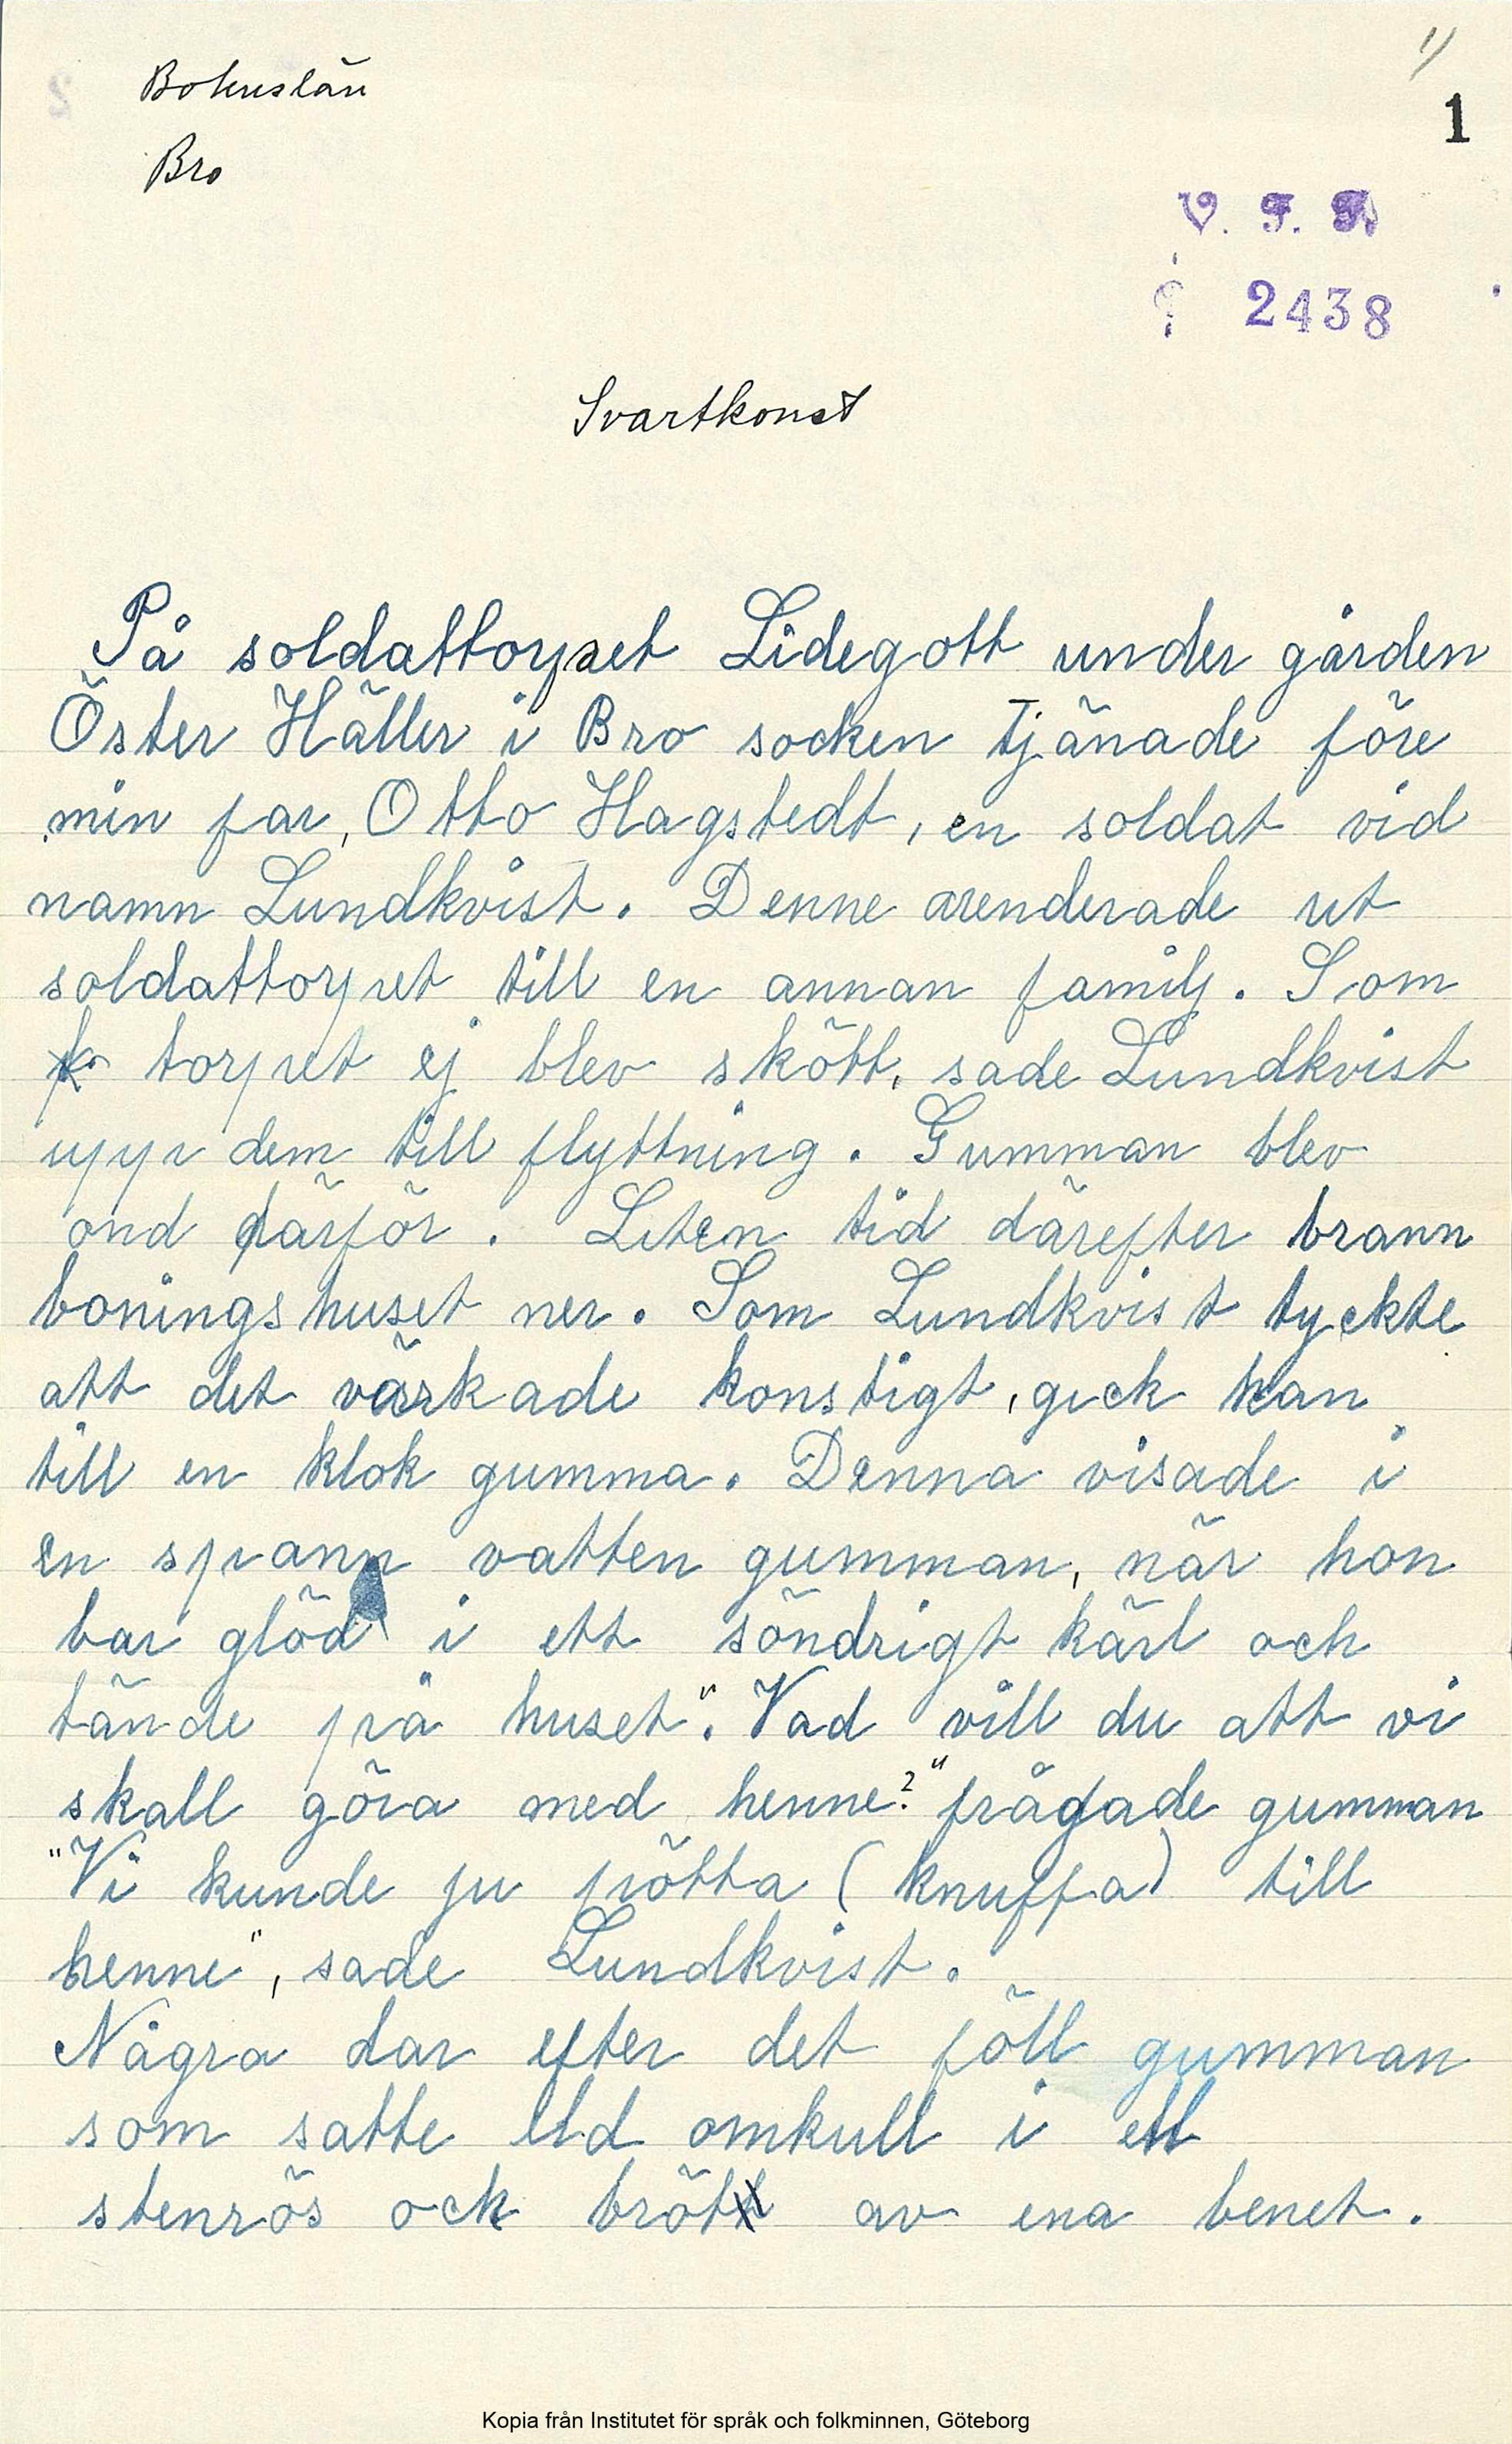 1)
Bohuslän
1
Bro
V. F. F.
2438
Svartkonst
På soldattorpet Lidegott under gården
Öster Häller i Bro socken tjänade före
min far, Otto Hagstedt, en soldat vid
namn Lundkvist. Denne arenderade ut
soldattorpet till en annan familj. Som
torpet ej blev skött, sade Lundkvist
upp dem till flyttning. Gumman blev
ond därför. Liten tid därefter brann
boningshuset ner. Som Lundkvist tyckte
att det värkade konstigt, gick han
till en klok gumma. Denna visade i
en spann vatten gumman, när hon
bar glöd i ett söndrigt kärl och
tände på huset". Vad vill du att vi
skall göra med henne?" frågade gumman
"Vi kunde ju pötta (knuffa) till
henne", sade Lundkvist.
Några dar efter det föll gumman
som satte eld omkull i ett
stenrös och bröt av ena benet.
Kopia från Institutet för språk och folkminnen, Göteborg